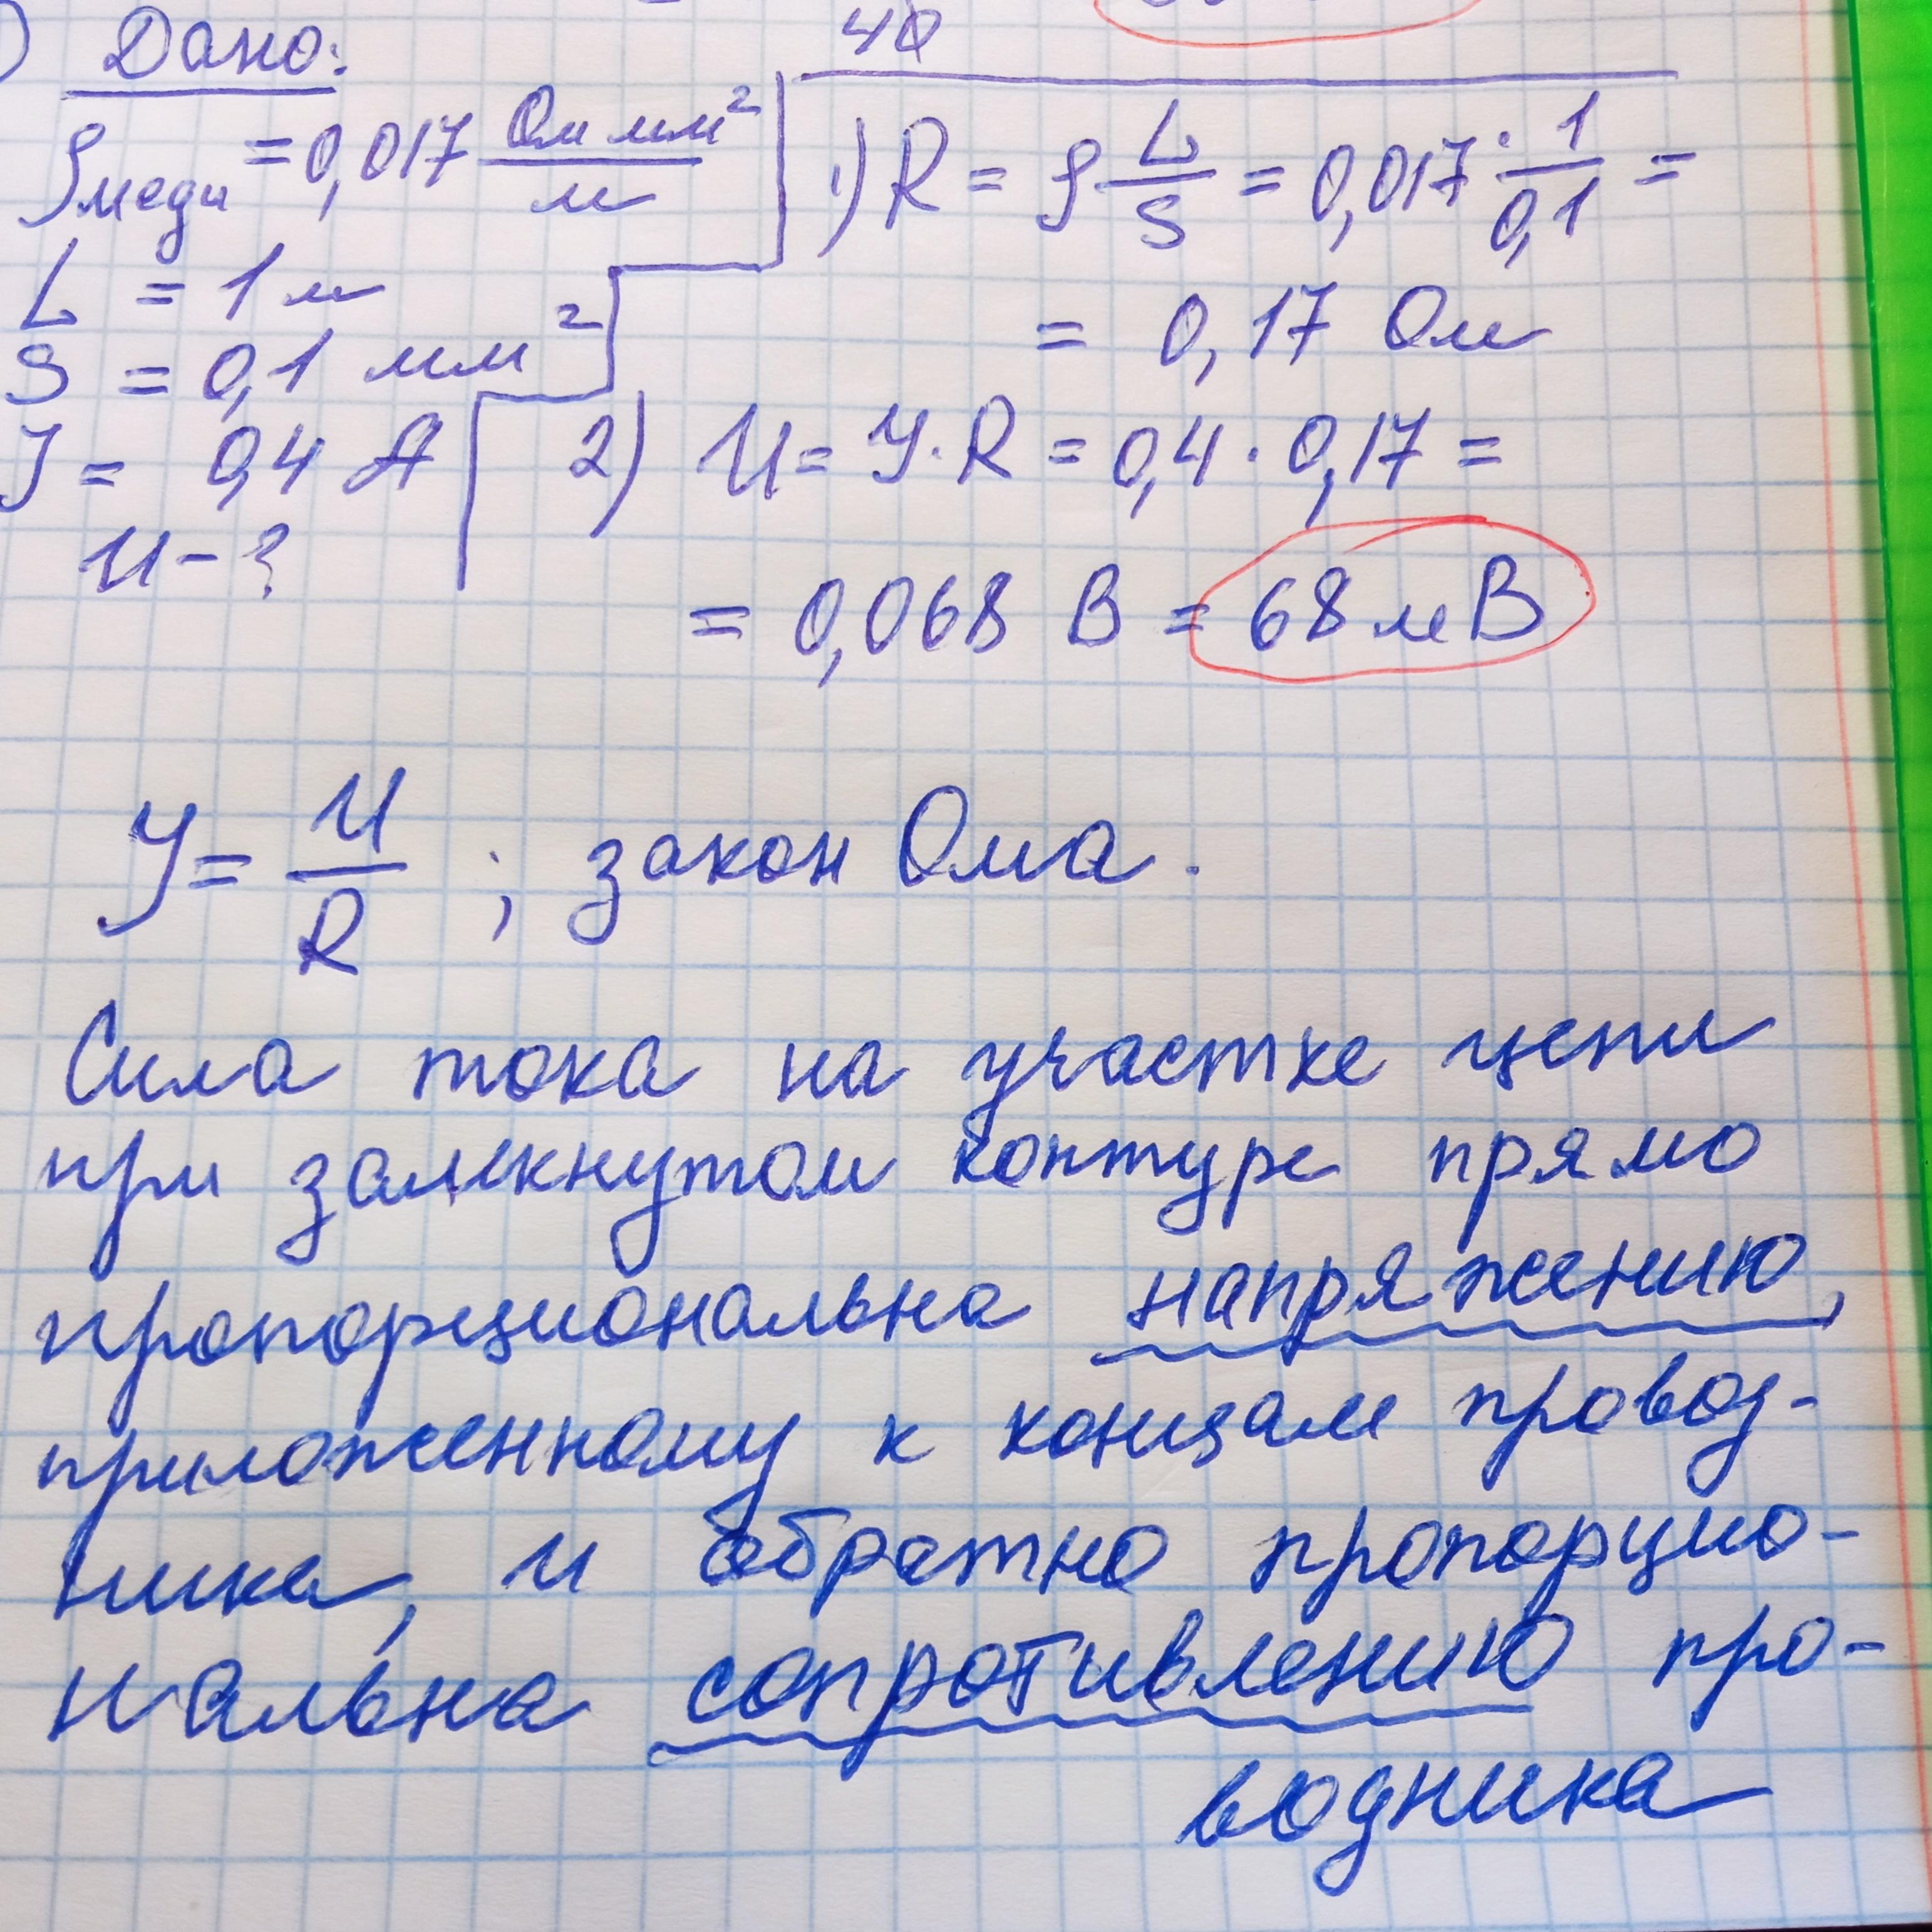 40
Дано:
ρмеди = 0,017 Ом мм²/м
L = 1 м
S = 0,1 мм²
I = 0,4 А
U - ?
1) R = ρ L/S = 0,017 · 1/0,1 =
= 0,17 Ом
2) U = I · R = 0,4 · 0,17 =
= 0,068 В = 68 мВ
I = U/R ; закон Ома.
Сила тока на участке цепи
при замкнутом контуре прямо
пропорциональна напряжению,
приложенному к концам провод-
ника, и обратно пропорцио-
нальна сопротивлению про-
водника